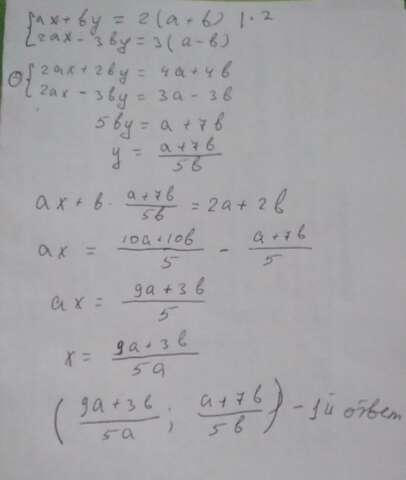 {ax + by = 2(a + b) | · 2
{2ax - 3by = 3(a - b)
⊖{2ax + 2by = 4a + 4b
2ax - 3by = 3a - 3b
5by = a + 7b
y = (a + 7b)/(5b)
ax + b · (a + 7b)/(5b) = 2a + 2b
ax = (10a + 10b)/5 - (a + 7b)/5
ax = (9a + 3b)/5
x = (9a + 3b)/(5a)
((9a + 3b)/(5a) ; (a + 7b)/(5b)) - 1й ответ